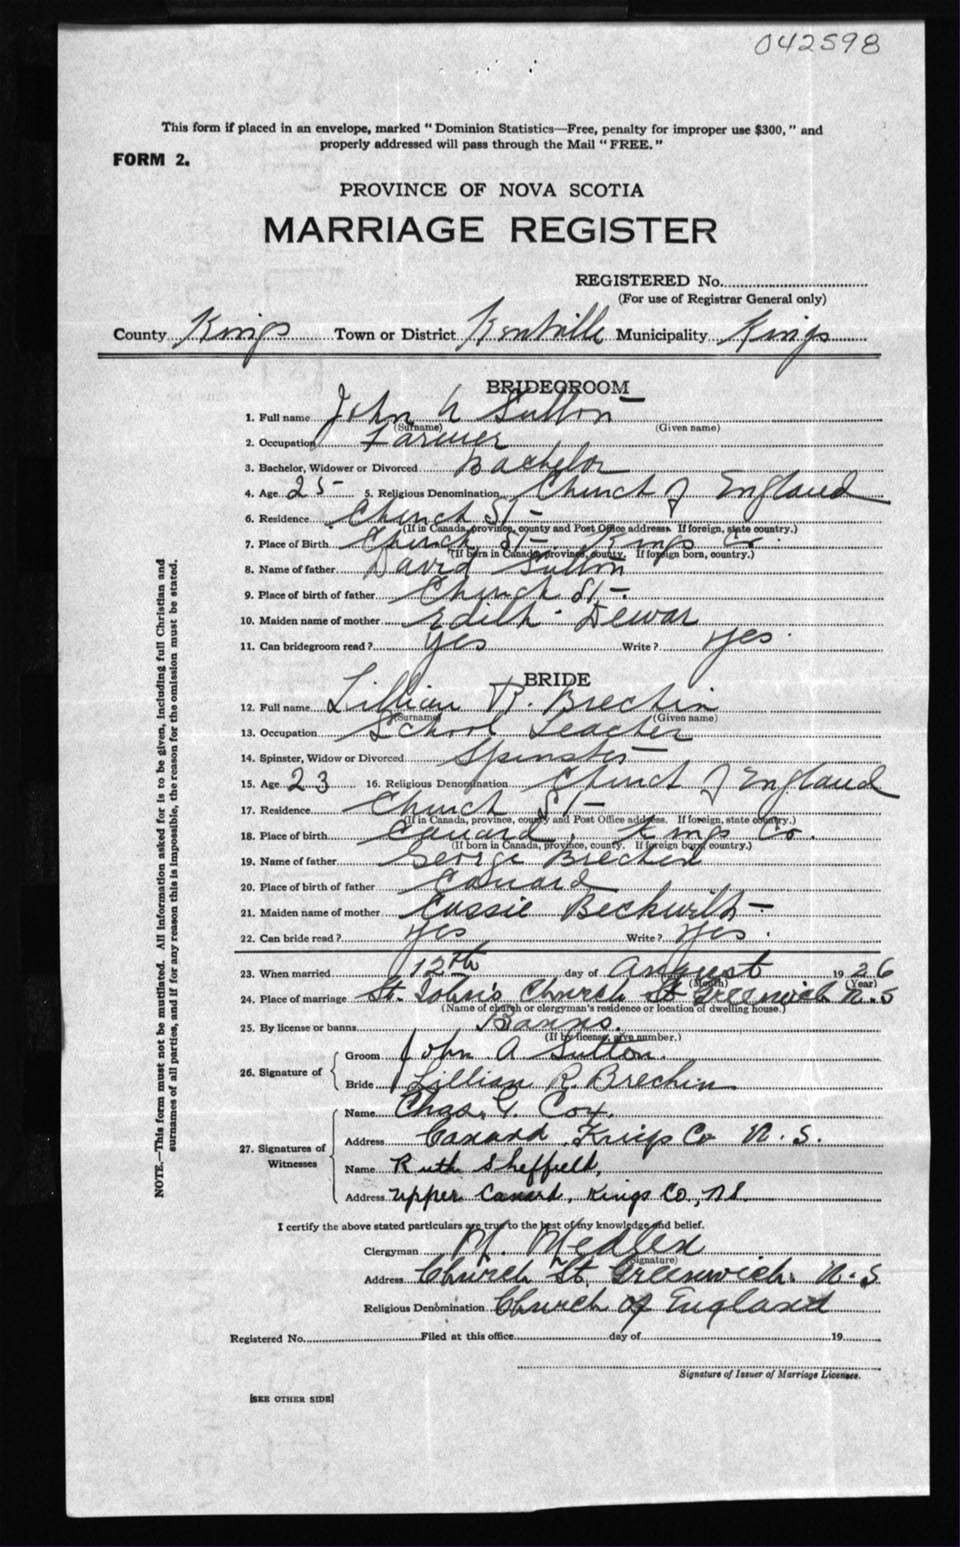 042598
This form if placed in an envelope, marked "Dominion Statistics—Free, penalty for improper use $300," and
properly addressed will pass through the Mail "FREE."
FORM 2.
PROVINCE OF NOVA SCOTIA
MARRIAGE REGISTER
REGISTERED No.
(For use of Registrar General only)
County Kings Town or District Kentville Municipality Kings
BRIDEGROOM
1. Full name John A Sutton
(Surname) (Given name)
2. Occupation Farmer
3. Bachelor, Widower or Divorced Bachelor
4. Age 25 5. Religious Denomination Church of England
6. Residence Church St
(If in Canada, province, county and Post Office address. If foreign, state country.)
7. Place of Birth Church St Kings Co.
(If born in Canada, province, county. If foreign born, country.)
8. Name of father David Sutton
9. Place of birth of father Church St.
10. Maiden name of mother Edith Dewar
11. Can bridegroom read? Yes Write? Yes
BRIDE
12. Full name Lillian R. Brechin
(Surname) (Given name)
13. Occupation School Teacher
14. Spinster, Widow or Divorced Spinster
15. Age 23 16. Religious Denomination Church of England
17. Residence Church St
(If in Canada, province, county and Post Office address. If foreign, state country.)
18. Place of birth Canard, Kings Co.
(If born in Canada, province, county. If foreign born, country.)
19. Name of father George Brechin
20. Place of birth of father Canard
21. Maiden name of mother Cassie Beckwith
22. Can bride read? Yes Write? Yes.
23. When married 12th day of August 1926
(Month) (Year)
24. Place of marriage St. John's Church St Greenwich N.S
(Name of church or clergyman's residence or location of dwelling house.)
25. By license or banns Banns.
(If by license, give number.)
26. Signature of
Groom John A Sutton.
Bride Lillian R. Brechin
27. Signatures of Witnesses
Name Chas. G. Cox.
Address Canard, Kings Co N.S.
Name Ruth Sheffield,
Address Upper Canard, Kings Co., N.S.
I certify the above stated particulars are true to the best of my knowledge and belief.
Clergyman M. Medlen
(Signature)
Address Church St, Greenwich. N.S
Religious Denomination Church of England
Registered No. Filed at this office day of 19
Signature of Issuer of Marriage Licenses.
[SEE OTHER SIDE]
NOTE.—This form must not be mutilated. All information asked for is to be given, including full Christian and
surnames of all parties, and if for any reason this is impossible, the reason for the omission must be stated.